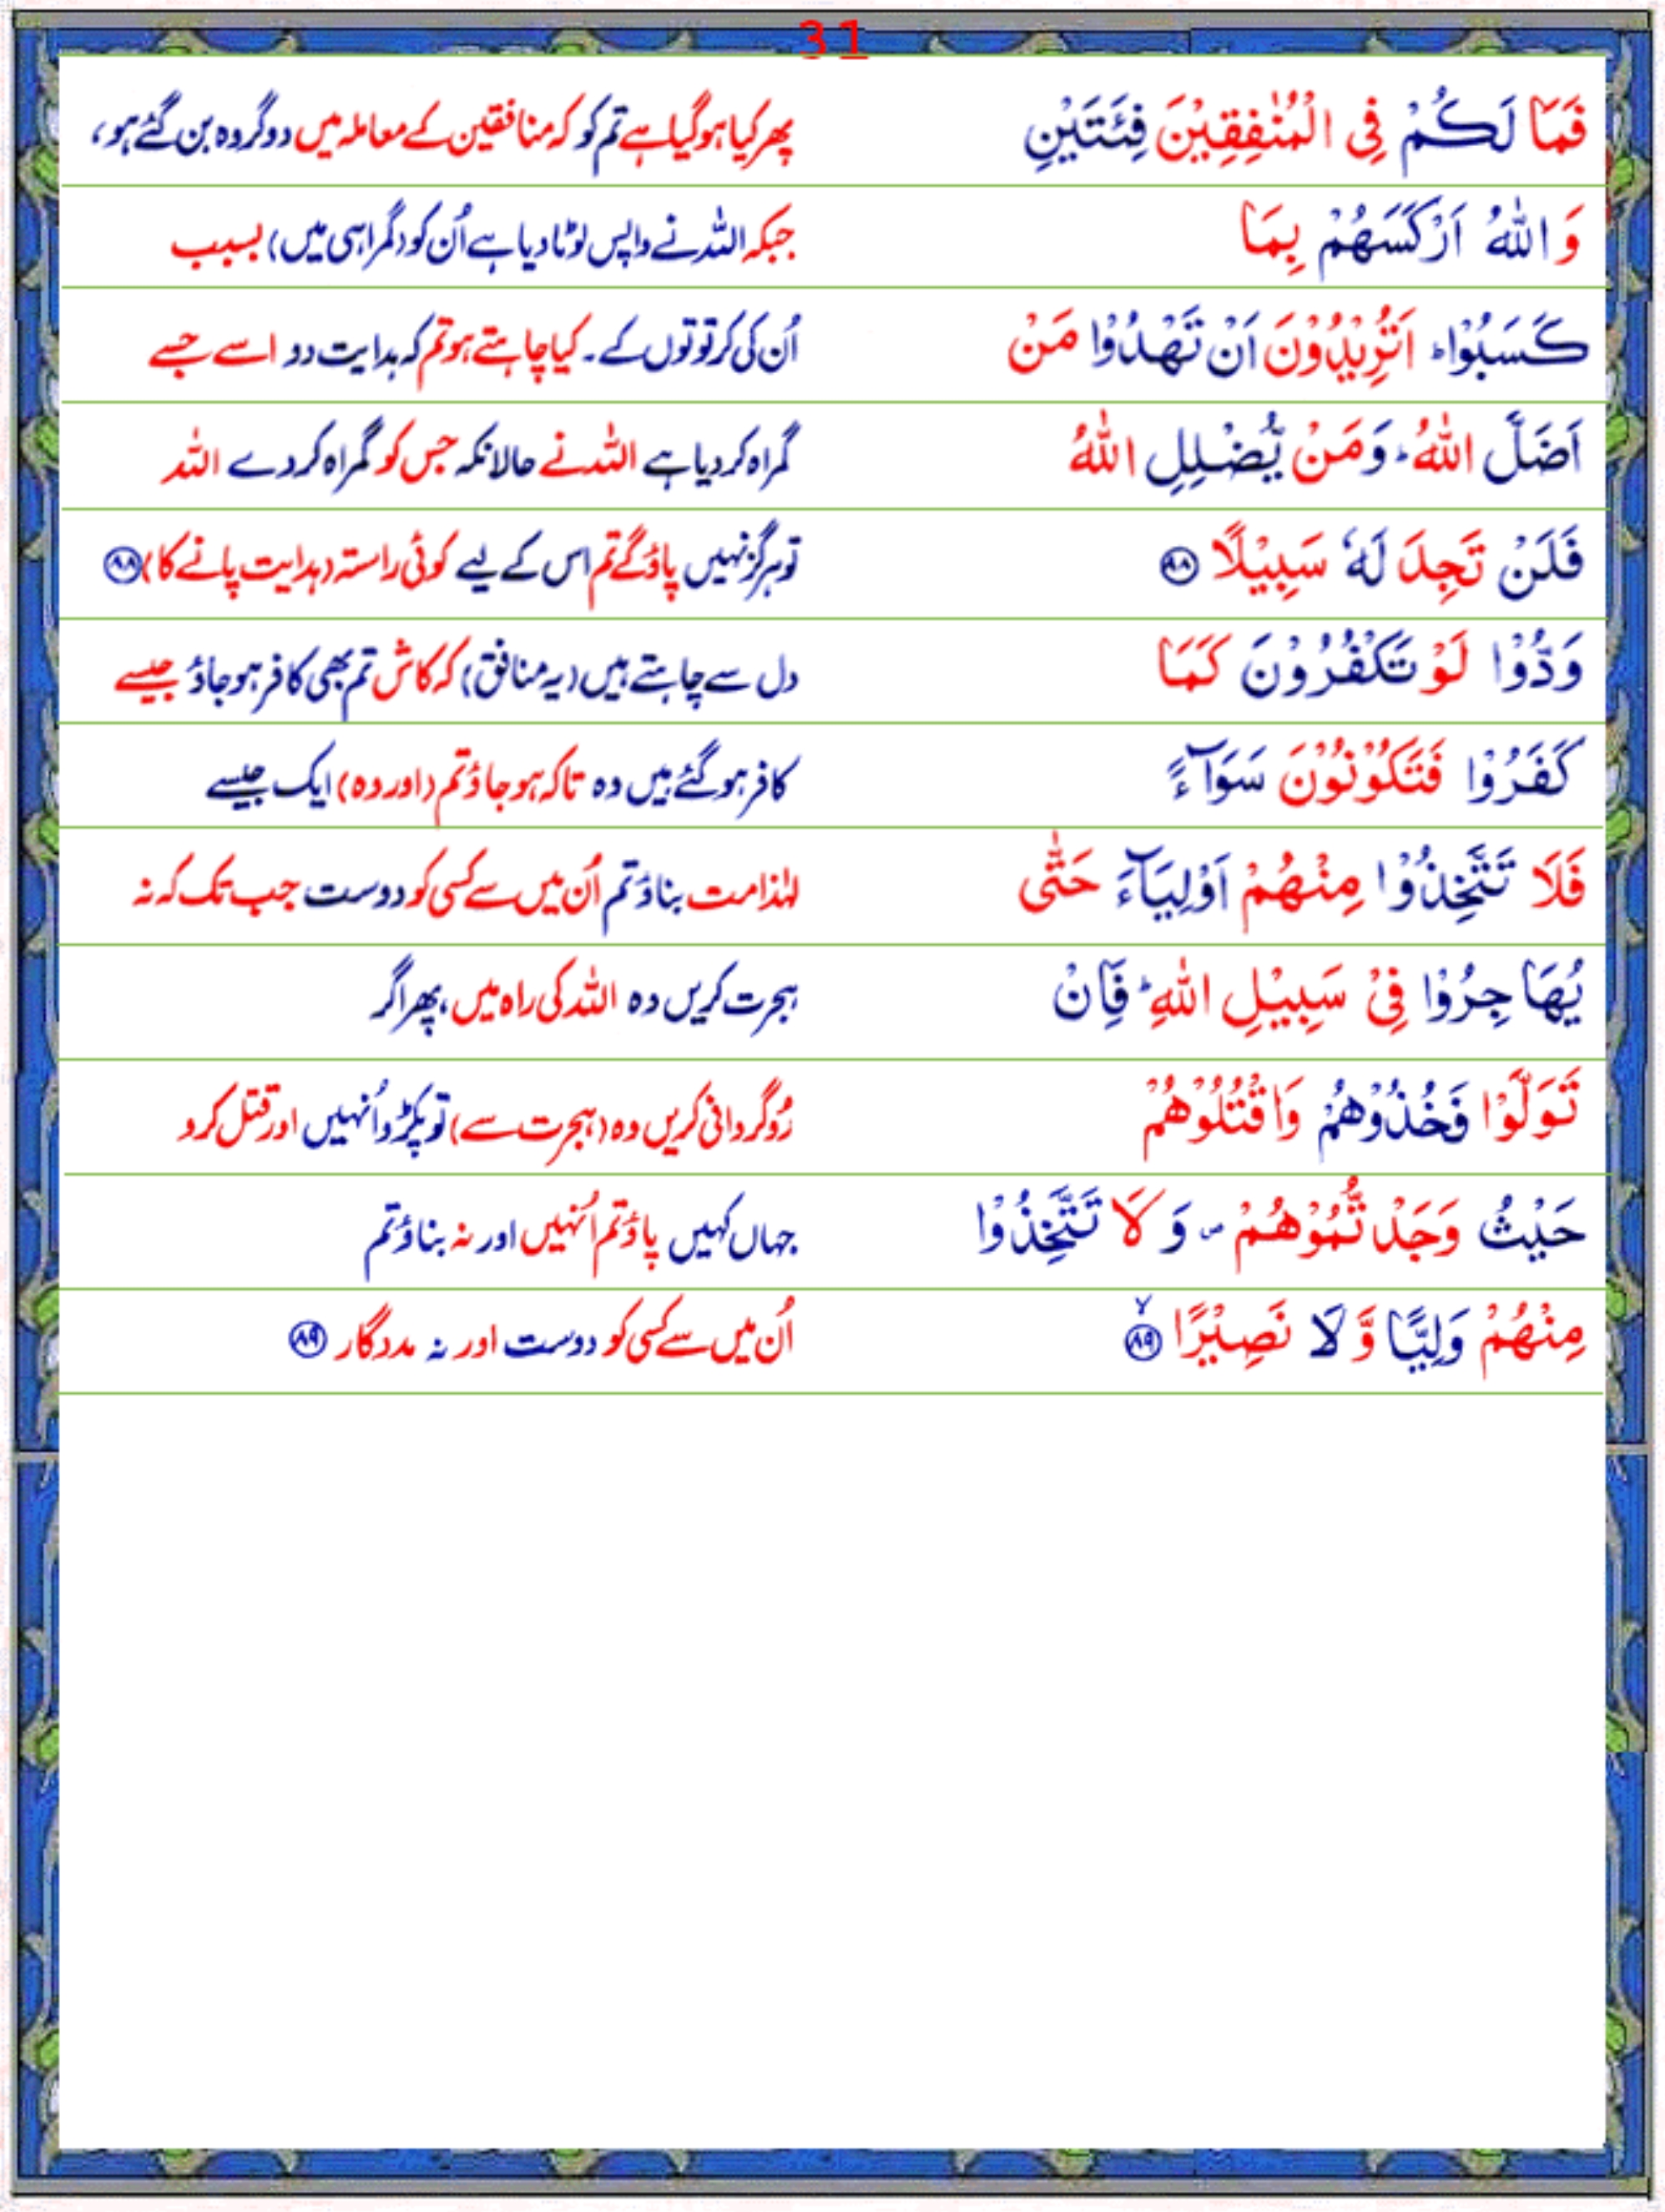 31
فَمَا لَكُمْ فِى الْمُنٰفِقِيْنَ فِئَتَيْنِ پھر کیا ہو گیا ہے تم کو کہ منافقین کے معاملہ میں دو گروہ بن گئے ہو،
وَاللّٰهُ اَرْكَسَهُمْ بِمَا جبکہ اللہ نے واپس لوٹا دیا ہے اُن کو (گمراہی میں) بسبب
كَسَبُوْا ؕ اَتُرِيْدُوْنَ اَنْ تَهْدُوْا مَنْ اُن کی کرتوتوں کے ۔ کیا چاہتے ہو تم کہ ہدایت دو اسے جسے
اَضَلَّ اللّٰهُ ؕ وَمَنْ يُّضْلِلِ اللّٰهُ گمراہ کردیا ہے اللہ نے حالانکہ جس کو گمراہ کردے اللہ
فَلَنْ تَجِدَ لَهٗ سَبِيْلًا ۸۸ تو ہرگز نہیں پاؤگے تم اس کے لیے کوئی راستہ (ہدایت پانے کا) ۸۸
وَدُّوْا لَوْ تَكْفُرُوْنَ كَمَا دل سے چاہتے ہیں (یہ منافق) کہ کاش تم بھی کافر ہوجاؤ جیسے
كَفَرُوْا فَتَكُوْنُوْنَ سَوَآءً کافر ہو گئے ہیں وہ تاکہ ہوجاؤ تم (اور وہ) ایک جیسے
فَلَا تَتَّخِذُوْا مِنْهُمْ اَوْلِيَآءَ حَتّٰى لہٰذا مت بناؤ تم اُن میں سے کسی کو دوست جب تک کہ نہ
يُهَاجِرُوْا فِىْ سَبِيْلِ اللّٰهِ ؕ فَاِنْ ہجرت کریں وہ اللہ کی راہ میں ، پھر اگر
تَوَلَّوْا فَخُذُوْهُمْ وَاقْتُلُوْهُمْ رُوگردانی کریں وہ (ہجرت سے) تو پکڑو اُنہیں اور قتل کرو
حَيْثُ وَجَدْتُّمُوْهُمْ ۪ وَلَا تَتَّخِذُوْا جہاں کہیں پاؤ تم اُنہیں اور نہ بناؤ تم
مِنْهُمْ وَلِيًّا وَّلَا نَصِيْرًا ۙ ۸۹ اُن میں سے کسی کو دوست اور نہ مددگار ۸۹